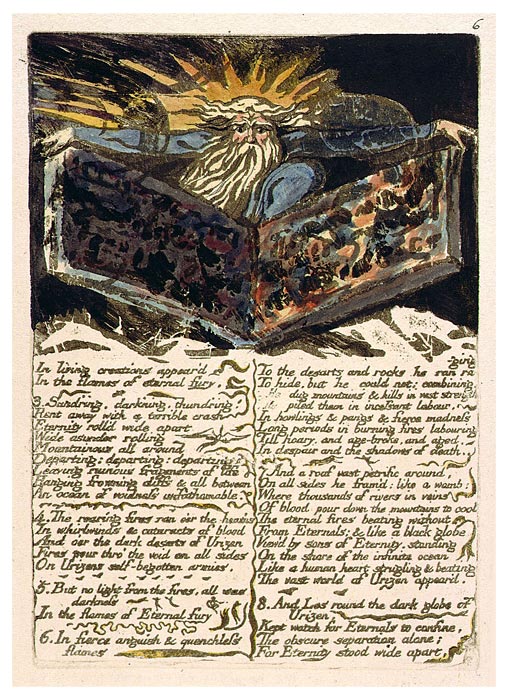 6
In living creations appear'd
In the flames of eternal fury.
3. Sundring, darkning, thundring
Rent away with a terrible crash
Eternity roll'd wide apart
Wide asunder rolling
Mountainous all around
Departing; departing; departing:
Leaving ruinous fragments of life
Hanging frowning cliffs & all between
An ocean of voidness unfathomable.
4. The roaring fires ran o'er the heav'ns
In whirlwinds & cataracts of blood
And o'er the dark desarts of Urizen
Fires pour thro' the void on all sides
On Urizens self-begotten armies.
5. But no light from the fires. all was
darkness
In the flames of Eternal fury
6. In fierce anguish & quenchless
flames
To the desarts and rocks he ran raging
To hide, but he could not: combining
dug mountains & hills in vast strength
piled them in incessant labour,
In howlings & pangs & fierce madness
Long periods in burning fires labouring
Till hoary, and age-broke, and aged,
In despair and the shadows of death.
7. And a roof vast petrific around,
On all sides he fram'd: like a womb;
Where thousands of rivers in veins
Of blood pour down the mountains to cool
The eternal fires beating without
From Eternals; & like a black globe
View'd by sons of Eternity, standing
On the shore of the infinite ocean
Like a human heart strugling & beating
The vast world of Urizen appear'd.
8. And Los round the dark globe of
Urizen,
Kept watch for Eternals to confine,
The obscure separation alone;
For Eternity stood wide apart,